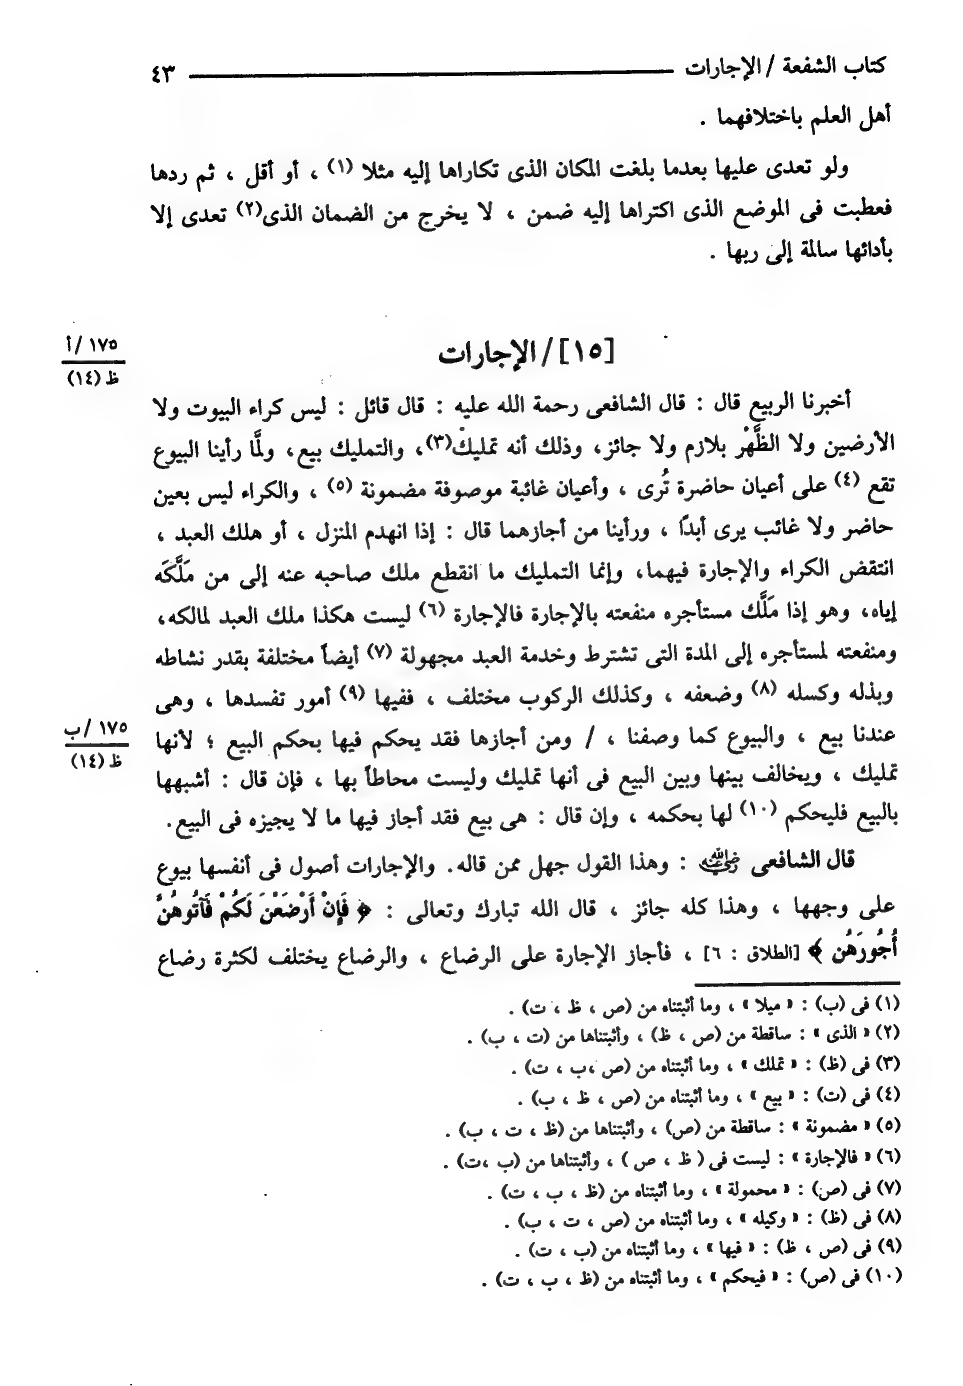 كتاب الشفعة / الإجارات ٤٣
أهل العلم باختلافهما .
ولو تعدى عليها بعدما بلغت المكان الذى تكاراها إليه مثلا (١) ، أو أقل ، ثم ردها
فعطبت فى الموضع الذى اكتراها إليه ضمن ، لا يخرج من الضمان الذى(٢) تعدى إلا
بأدائها سالمة إلى ربها .
[١٥] / الإجارات
١٧٥ / أ
ظ (١٤)
أخبرنا الربيع قال : قال الشافعى رحمة الله عليه : قال قائل : ليس كراء البيوت ولا
الأرضين ولا الظَّهْر بلازم ولا جائز، وذلك أنه تمليك(٣)، والتمليك بيع، ولمَّا رأينا البيوع
تقع (٤) على أعيان حاضرة تُرى ، وأعيان غائبة موصوفة مضمونة (٥) ، والكراء ليس بعين
حاضر ولا غائب يرى أبدًا ، ورأينا من أجازهما قال : إذا انهدم المنزل ، أو هلك العبد ،
انتقض الكراء والإجارة فيهما، وإنما التمليك ما انقطع ملك صاحبه عنه إلى من مَلَّكَه
إياه، وهو إذا مَلَّك مستأجره منفعته بالإجارة فالإجارة (٦) ليست هكذا ملك العبد لمالكه،
ومنفعته لمستأجره إلى المدة التى تشترط وخدمة العبد مجهولة (٧) أيضاً مختلفة بقدر نشاطه
وبذله وكسله (٨) وضعفه ، وكذلك الركوب مختلف ، ففيها (٩) أمور تفسدها ، وهى
عندنا بيع ، والبيوع كما وصفنا ، / ومن أجازها فقد يحكم فيها بحكم البيع ؛ لأنها
١٧٥ / ب
ظ (١٤)
تمليك ، ويخالف بينها وبين البيع فى أنها تمليك وليست محاطاً بها ، فإن قال : أشبهها
بالبيع فليحكم (١٠) لها بحكمه ، وإن قال : هى بيع فقد أجاز فيها ما لا يجيزه فى البيع.
قال الشافعى رضي الله عنه : وهذا القول جهل ممن قاله. والإجارات أصول فى أنفسها بيوع
على وجهها ، وهذا كله جائز ، قال الله تبارك وتعالى : ﴿ فَإِنْ أَرْضَعْنَ لَكُمْ فَآتُوهُنَّ
أُجُورَهُنَّ ﴾ [الطلاق : ٦] ، فأجاز الإجارة على الرضاع ، والرضاع يختلف لكثرة رضاع
(١) فى (ب) : « ميلا » ، وما أثبتناه من (ص ، ظ ، ت) .
(٢) « الذى » : ساقطة من (ص ، ظ) ، وأثبتناها من (ت ، ب) .
(٣) فى (ظ) : « تملك » ، وما أثبتناه من (ص ،ب ، ت) .
(٤) فى (ت) : « بيع » ، وما أثبتناه من (ص ، ظ ، ب) .
(٥) « مضمونة » : ساقطة من (ص) ، وأثبتناها من (ظ ، ت ، ب) .
(٦) « فالإجارة » : ليست فى ( ظ ، ص ) ، وأثبتناها من (ب ،ت) .
(٧) فى (ص) : « محمولة » ، وما أثبتناه من (ظ ، ب ، ت) .
(٨) فى (ظ) : « وكيله » ، وما أثبتناه من (ص ، ت ، ب) .
(٩) فى (ص ، ظ) : « فيها » ، وما أثبتناه من (ب ، ت) .
(١٠) فى (ص) : « فيحكم » ، وما أثبتناه من (ظ ، ب ، ت) .